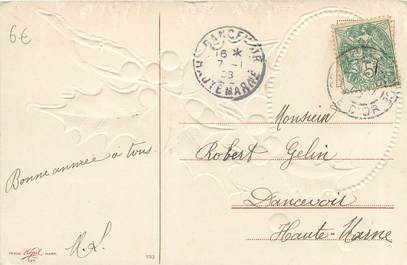 6€
DANCEVOIR
16 *
7 - 1
08
HAUTE MARNE
5
Monsieur
Robert Gelin
Dancevoir
Haute-Marne
Bonne année à tous
M. L.
TRADE MARK
730